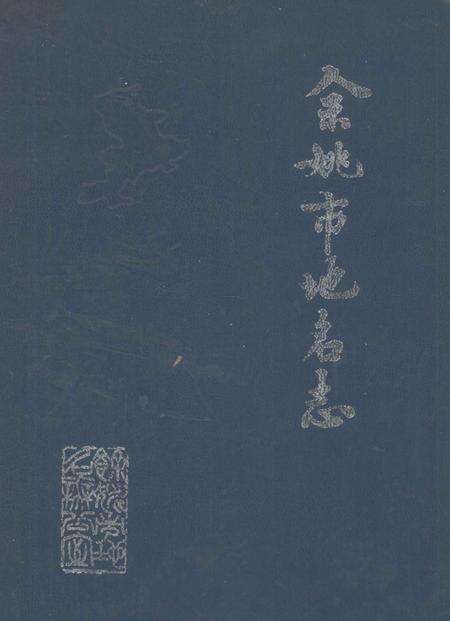 余姚市地名志